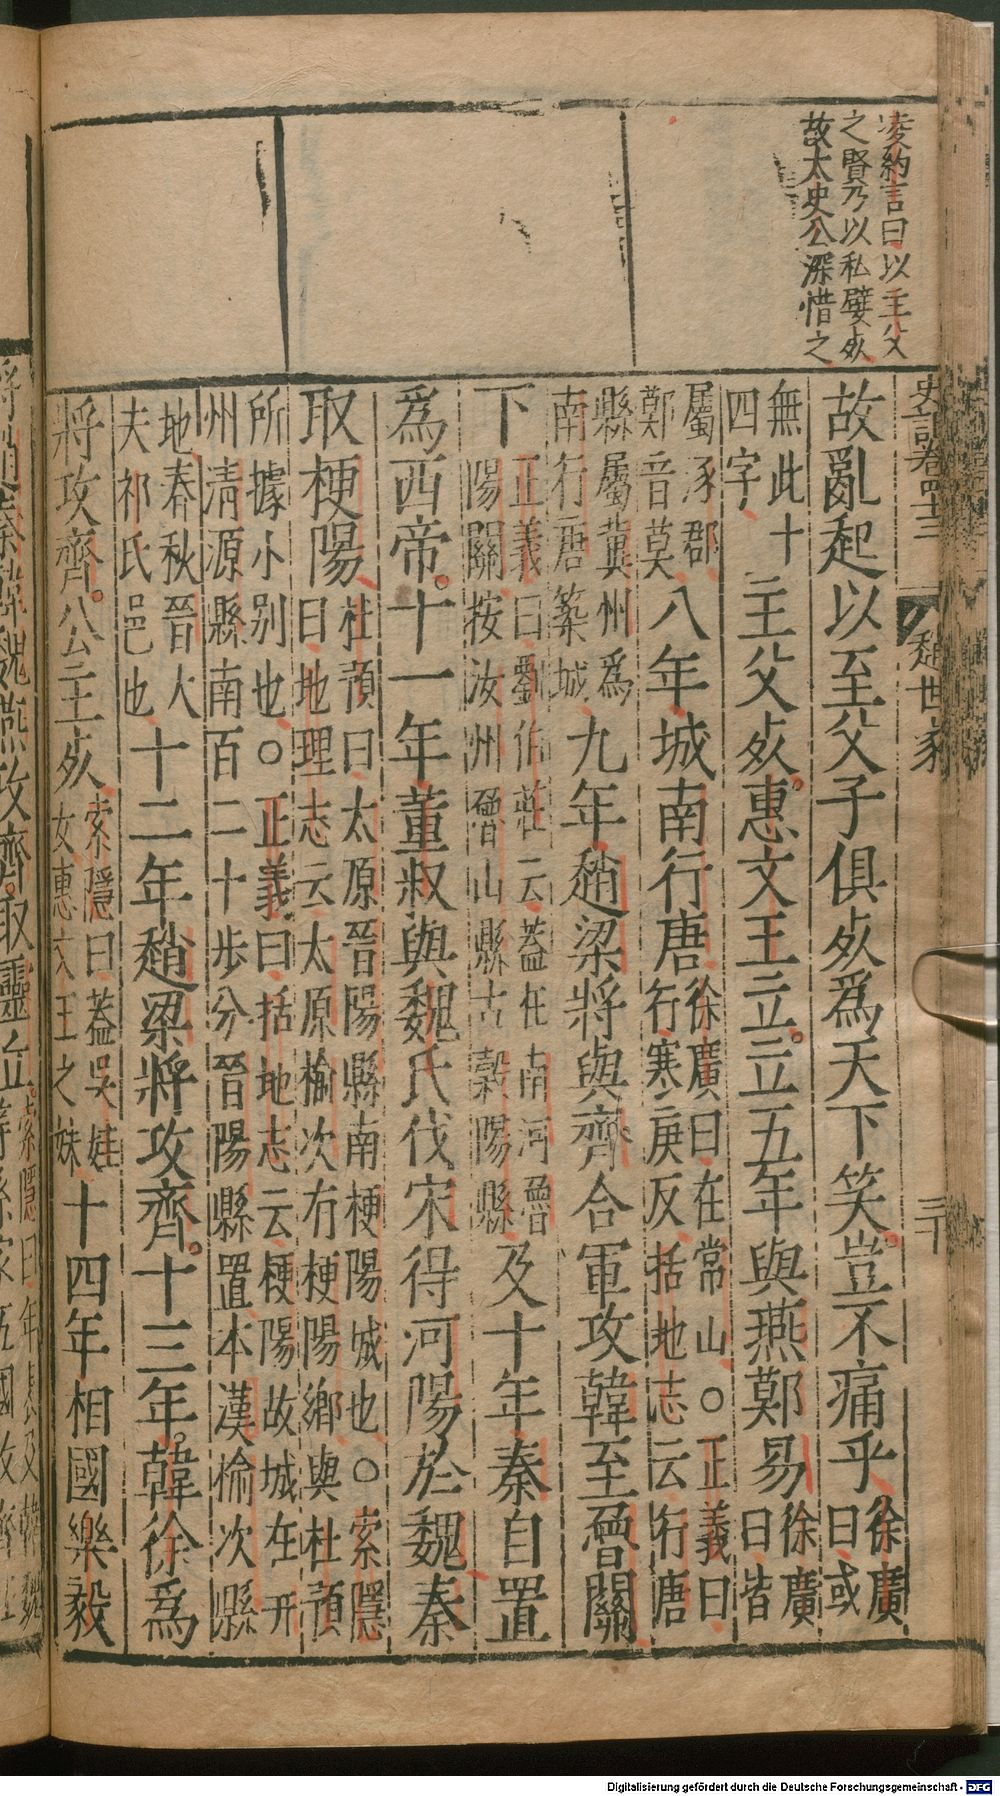 凌約言曰以主父
之賢乃以私嬖夾
故太史公深惜之
史記卷四十三
趙世家
三十
故亂起以至父子俱夾爲天下笑豈不痛乎徐廣曰或
無此十四字主父夾惠文王立立五年與燕鄭易徐廣曰皆
屬涿郡鄭音莫八年城南行唐徐廣曰在常山○正義曰行寒庚反括地志云行唐
縣屬冀州爲南行唐築城九年趙梁將與齊合軍攻韓至魯關
下正義曰劉伯莊云蓋在南河魯陽關按汝州魯山縣古穀陽縣及十年秦自置
爲西帝十一年董叔與魏氏伐宋得河陽於魏秦
取梗陽杜預曰太原晉陽縣南梗陽城也○索隱曰地理志云太原榆次有梗陽鄉與杜預
所據小别也○正義曰括地志云梗陽故城在幷州清源縣南百二十步分晉陽縣置本漢榆次縣
地春秋晉大夫祁氏邑也十二年趙梁將攻齊十三年韓徐爲
將攻齊公主夾索隱曰蓋吳娃女惠文王之妹十四年相國樂毅
Digitalisierung gefördert durch die Deutsche Forschungsgemeinschaft - DFG